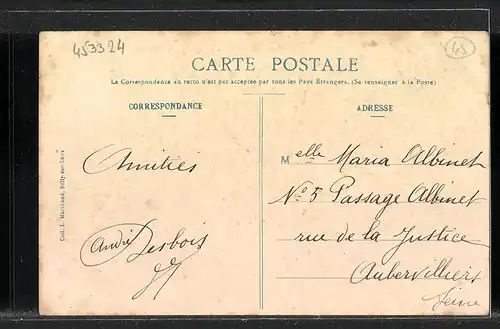 453324
45
CARTE POSTALE
La Correspondance au recto n'est pas acceptée par tous les Pays Étrangers. (Se renseigner à la Poste)
CORRESPONDANCE
Amitiés
André Desbois
Coll. L. Marchand, Sully-sur-Loire
ADRESSE
Melle Maria Albinet
No 5 Passage Albinet
rue de la Justice
Aubervilliers
Seine